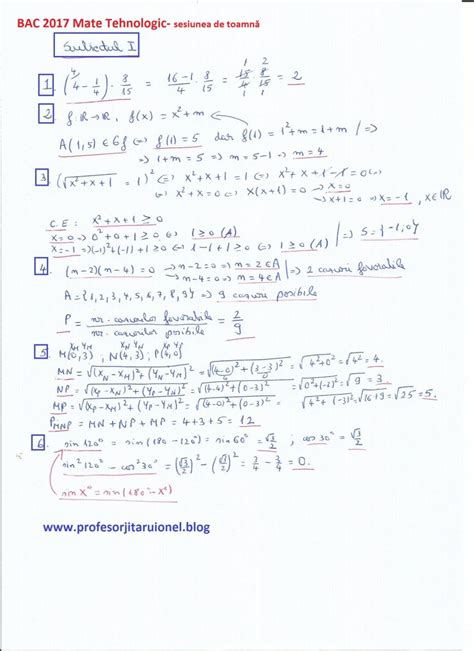 BAC 2017 Mate Tehnologic- sesiunea de toamnă
Subiectul I
1. (4 - 1/4) · 8/15 = (16-1)/4 · 8/15 = 15/4 · 8/15 = 2
2. f: R→R, f(x) = x² + m
A(1,5) ∈ Gf ⇔ f(1) = 5 dar f(1) = 1² + m = 1 + m | ⇒
⇒ 1 + m = 5 ⇒ m = 5 - 1 ⇒ m = 4
3. (√(x²+x+1) = 1)² ⇔ x²+x+1 = 1 ⇔ x²+x+1-1 = 0 ⇔
⇔ x²+x = 0 ⇔ x(x+1) = 0 ⇒ x = 0
⇒ x+1 = 0 ⇒ x = -1, x ∈ R
C.E: x²+x+1 ≥ 0
x = 0 ⇒ 0²+0+1 ≥ 0 ⇔ 1 ≥ 0 (A)
x = -1 ⇒ (-1)²+(-1)+1 ≥ 0 ⇔ 1-1+1 ≥ 0 ⇔ 1 ≥ 0 (A) | ⇒ S = {-1, 0}
4. (n-2)(n-4) = 0 ⇒ n-2 = 0 ⇒ n = 2 ∈ A
⇒ n-4 = 0 ⇒ n = 4 ∈ A | ⇒ 2 cazuri favorabile
A = {1,2,3,4,5,6,7,8,9} ⇒ 9 cazuri posibile
P = nr. cazurilor favorabile / nr. cazurilor posibile = 2/9
5. M(0,3); N(4,3); P(4,0)
MN = √((x_N - x_M)² + (y_N - y_M)²) = √((4-0)² + (3-3)²) = √(4²+0²) = √4² = 4.
NP = √((x_P - x_N)² + (y_P - y_N)²) = √((4-4)² + (0-3)²) = √(0²+(-3)²) = √9 = 3.
MP = √((x_P - x_M)² + (y_P - y_M)²) = √((4-0)² + (0-3)²) = √(4²+(-3)²) = √(16+9) = √25 = 5.
P_MNP = MN + NP + MP = 4+3+5 = 12
6. sin 120° = sin(180-120°) = sin 60° = √3/2 ; cos 30° = √3/2
sin² 120° - cos² 30° = (√3/2)² - (√3/2)² = 3/4 - 3/4 = 0.
sin x° = sin(180° - x°)
www.profesorjitaruionel.blog